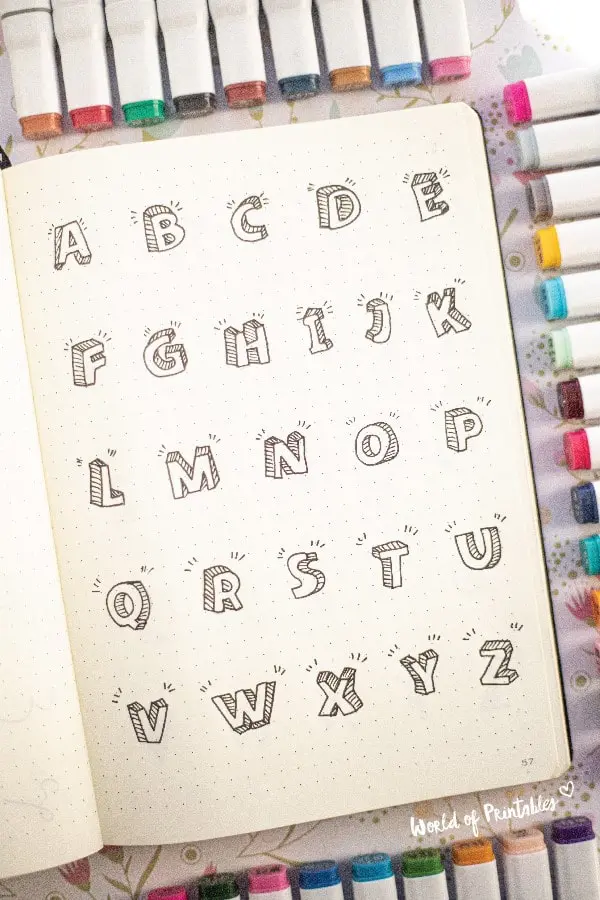 A B C D E
F G H I J K
L M N O P
Q R S T U
V W X Y Z
57
World of Printables